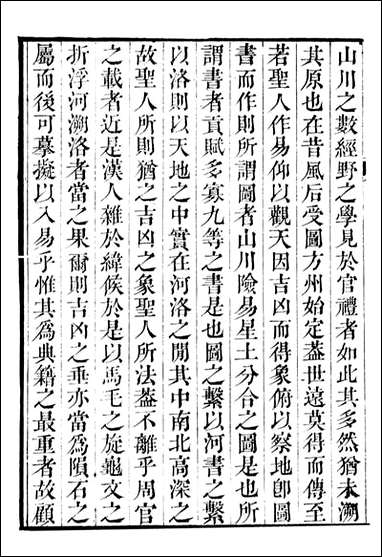 山川之數經野之學見於官禮者如此其多然猶未溯
其原也在昔風后受圖方州始定葢世遠莫得而傳至
若聖人作易仰以觀天因吉凶而得象俯以察地卽圖
書而作則所謂圖者山川險易星土分合之圖是也所
謂書者貢賦多寡九等之書是也圖之繫以河書之繫
以洛則以天地之中實在河洛之閒其中南北高深之
故聖人所則猶之吉凶之象聖人所法葢不離乎周官
之載者近是漢人雜於緯候於是以馬毛之旋龜文之
折浮河溯洛者當之果爾則吉凶之垂亦當為隕石之
屬而後可摹擬以入易乎惟其為典籍之最重者故顧